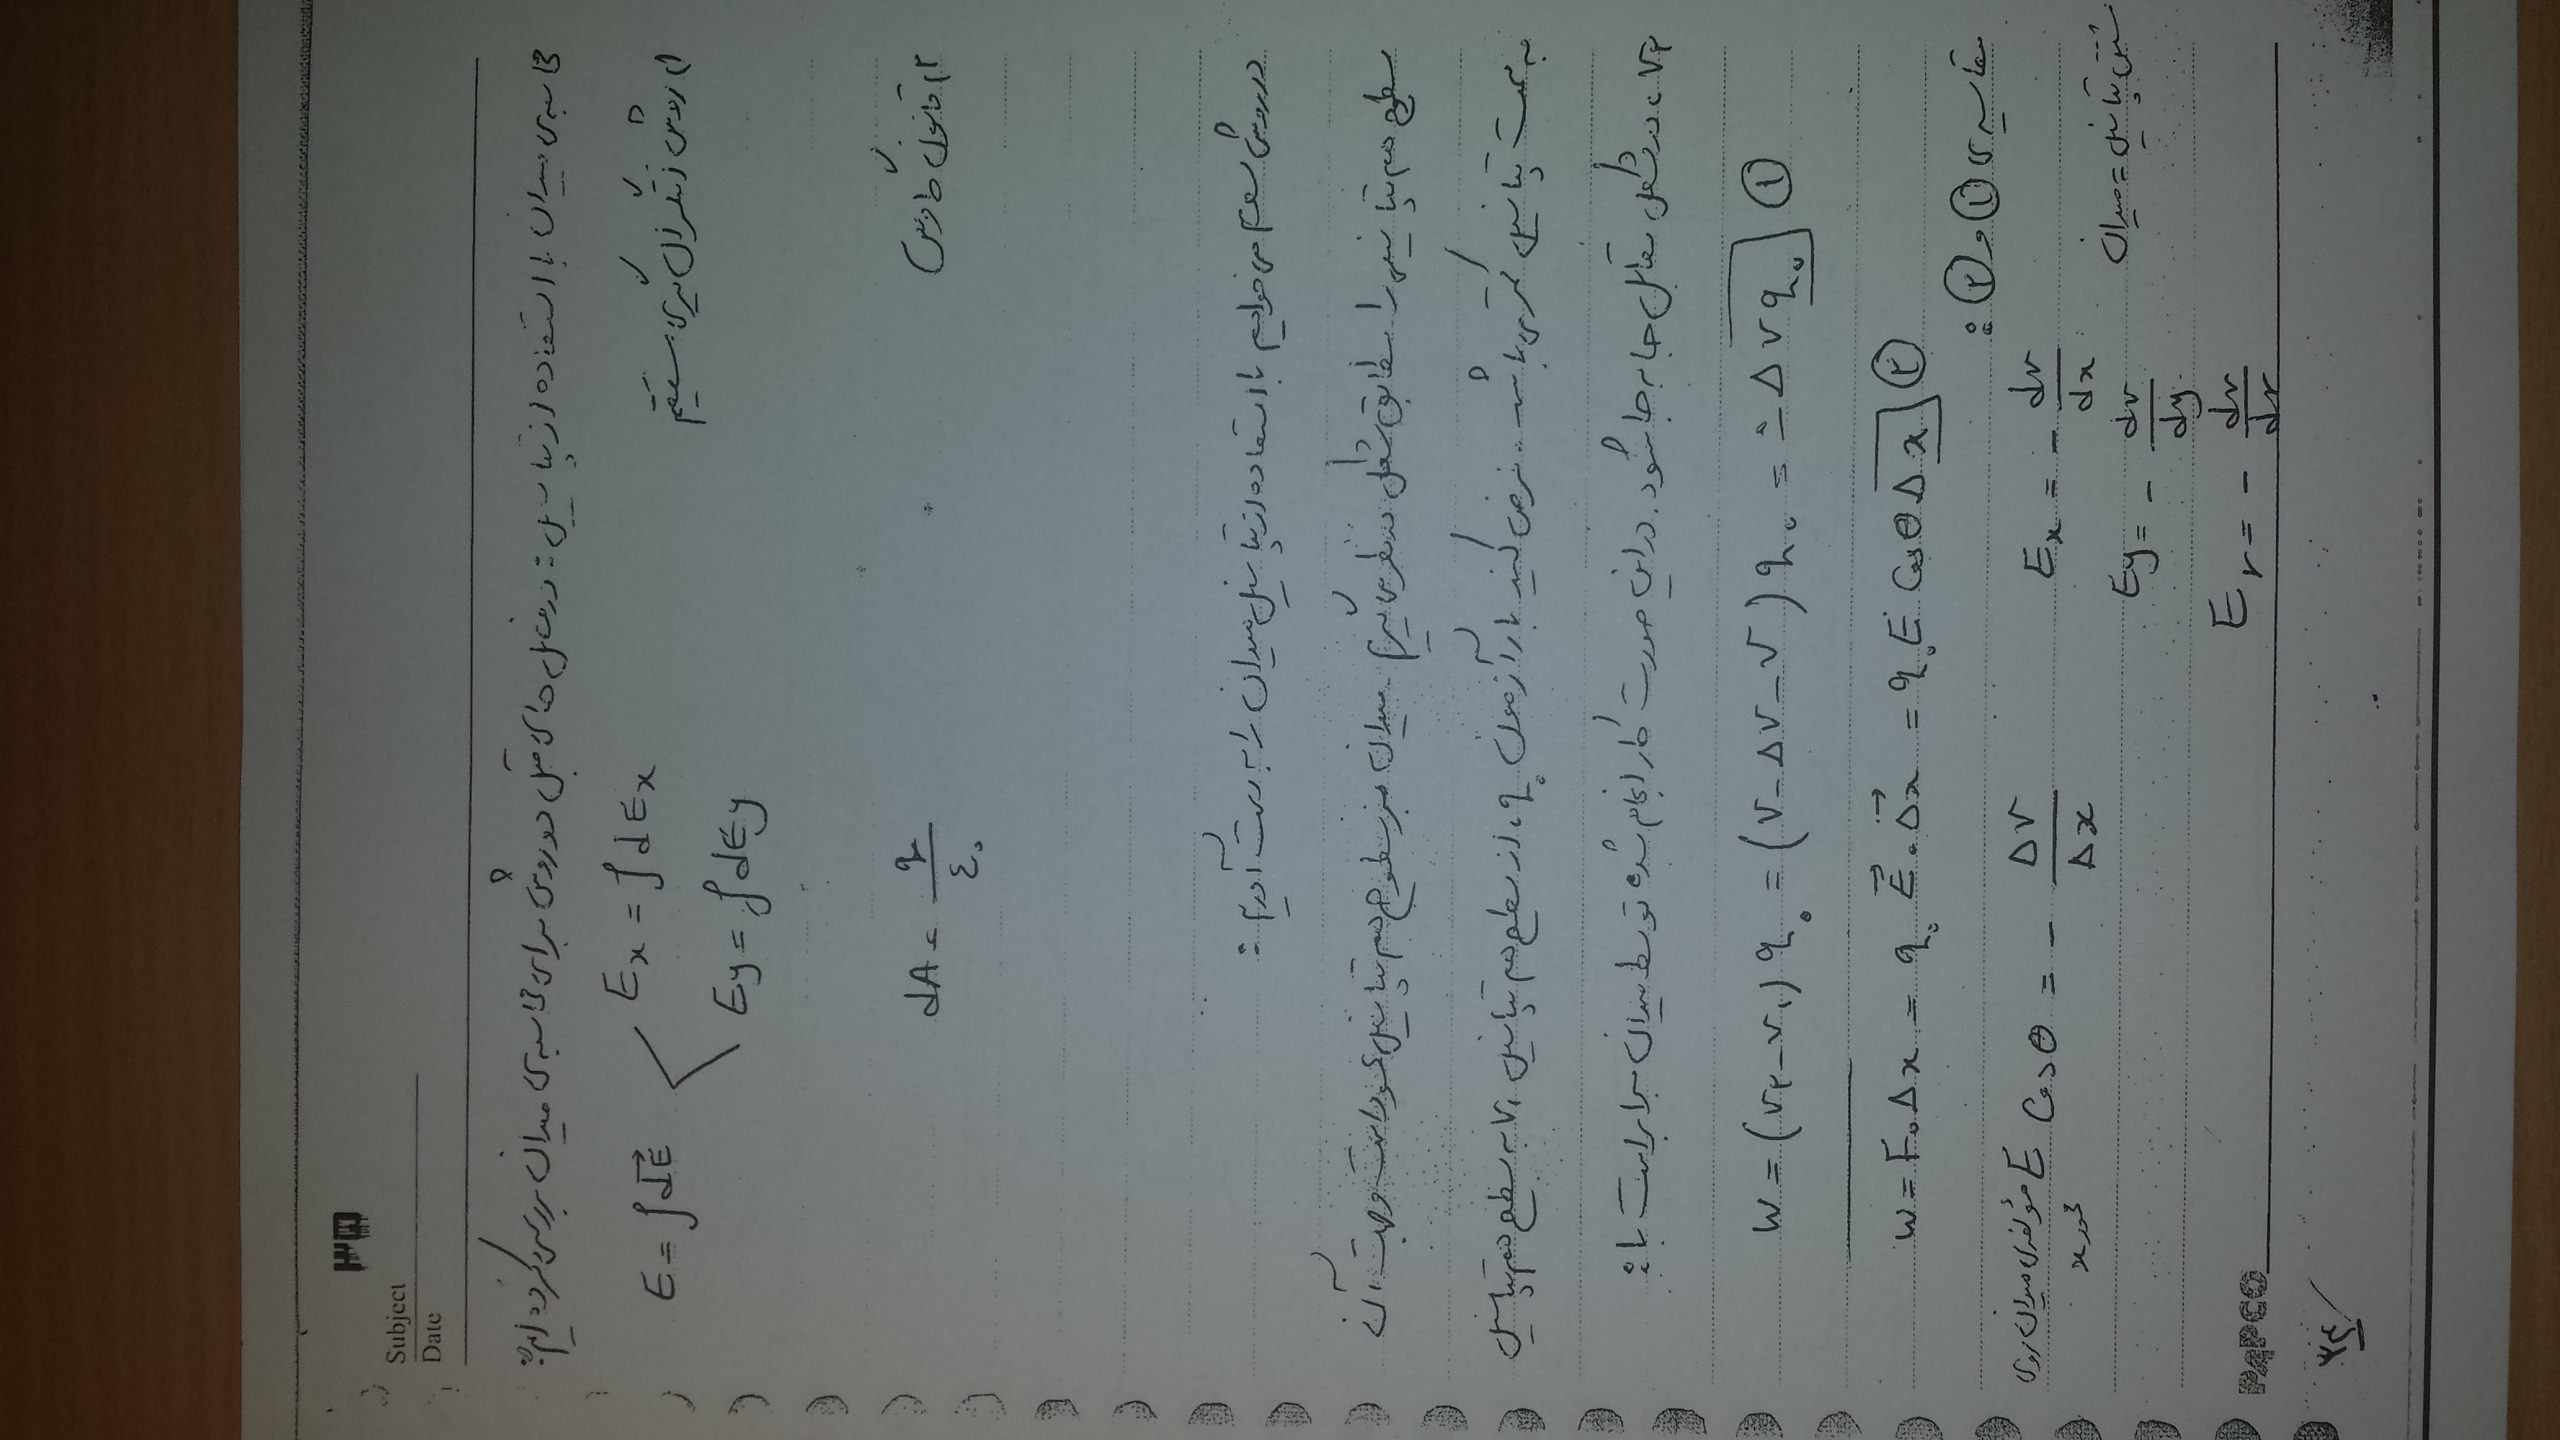 ۳۵
Subject
Date
محاسبه‌ی میدان با استفاده از پتانسیل: در فصل های قبل دو روش برای محاسبه‌ی میدان بررسی کرده ایم:
۱) روش انتگرال گیری مستقیم E = ∫dE⃗ < Ex = ∫dEx
Ey = ∫dEy
۲) قانون گاوس dA = q/ε₀
در روش سوم می خواهیم با استفاده از پتانسیل میدان را به دست آوریم:
سطوح هم پتانسیل را مطابق شکل در نظر می گیریم. میدان بر سطوح هم پتانسیل عمود است و جهت آن
به سمت پتانسیل کمتر می باشد. فرض کنید بار آزمون q₀، از سطح هم پتانسیل V₁ به سطح هم پتانسیل
V₂، در شکل مقابل جا به جا شود. در این صورت کار انجام شده توسط میدان برابر است با:
W = (V₂ - V₁) q₀ = (V - ΔV - V) q₀ = - ΔV q₀ ①
W = F.Δx = q₀ E⃗.Δx⃗ = q₀ E Cosθ Δx ②
مقایسه ی ① و ②:
مؤلفه‌ی میدان روی محور x E Cosθ = - ΔV/Δx Ex = - dv/dx
مشتق پتانسیل = میدان
Ey = - dv/dy
Er = - dv/dr
PAPCO
۳۴